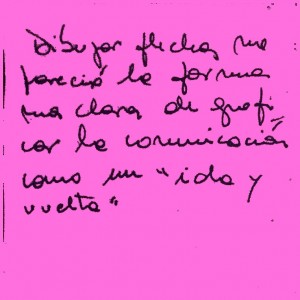 Dibujar flechas me
pareció la forma
mas clara de grafi
car la comunicación
como un "ida y
vuelta"